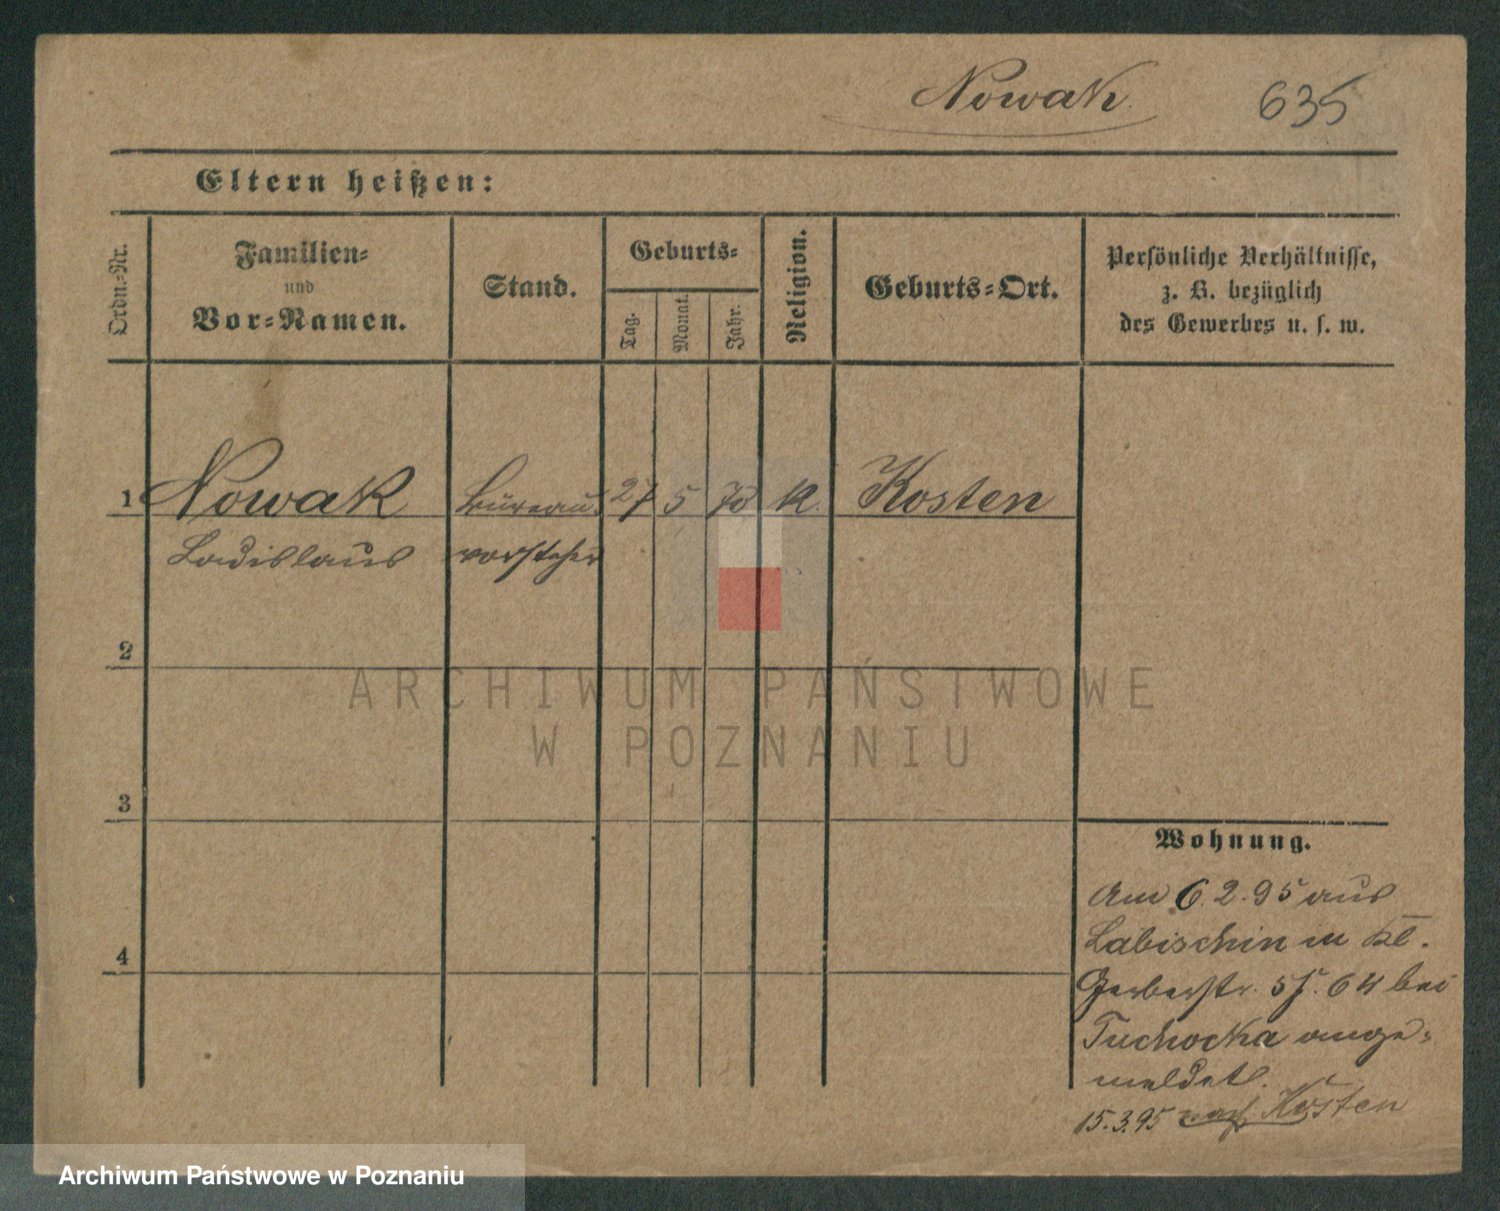 Nowak
635
Eltern heißen:
Ordn.-Nr.
Familien-
und
Vor-Namen.
Stand.
Geburts-
Tag.
Monat.
Jahr.
Religion.
Geburts-Ort.
Persönliche Verhältnisse,
z. B. bezüglich
des Gewerbes u. s. w.
1 Nowak Büreau- 27 5 70 K. Kosten
Ladislaus vorsteher
2
ARCHIWUM PAŃSTWOWE
W POZNANIU
3
Wohnung.
Am 6.2.95 aus
Labischin in Kl.
4
Gerberstr. bei
Tuchocka ange-
meldet.
15.3.95 nach Kosten
Archiwum Państwowe w Poznaniu